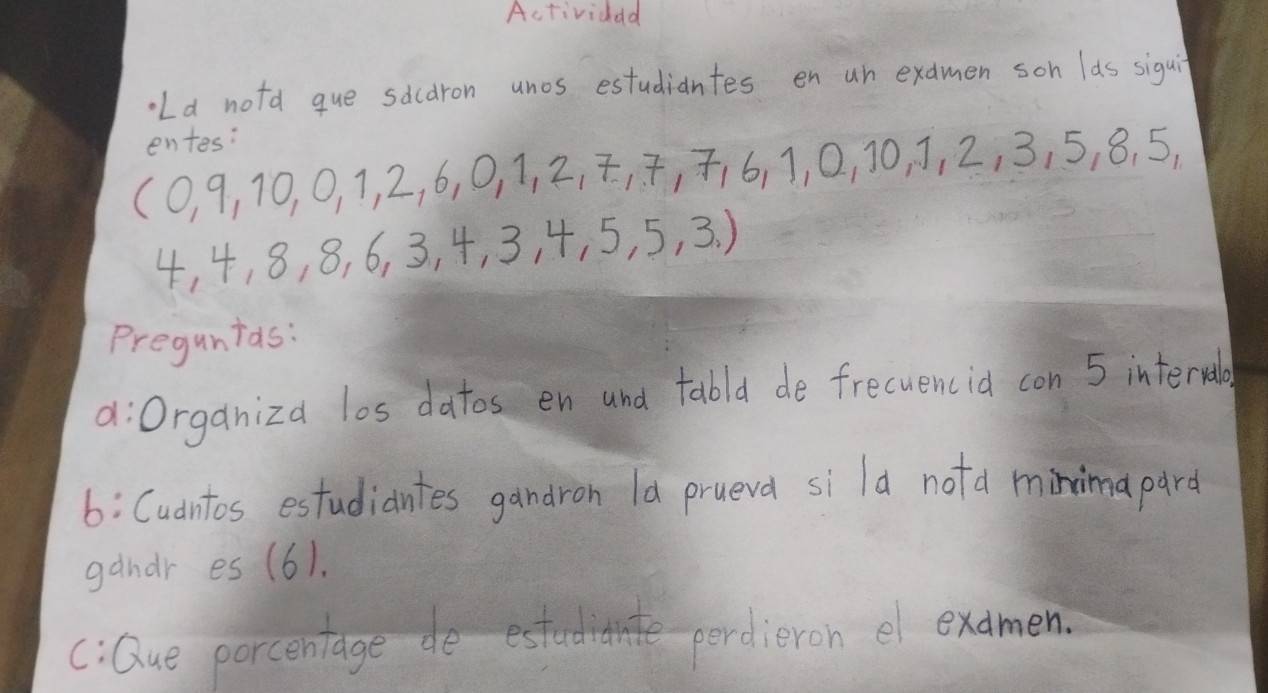 Actividad
•La nota que sacaron unos estudiantes en un examen son las sigui
entes:
(0,9,10,0,1,2,6,0,1,2,7,7,7,6,1,0,10,1,2,3,5,8,5,
4,4,8,8,6,3,4,3,4,5,5,3.)
Preguntas:
a:Organiza los datos en una tabla de frecuencia con 5 intervalo
b:Cuantos estudiantes ganaron la prueva si la nota minima para
ganar es (6).
C:Que porcentage de estudiante perdieron el examen.